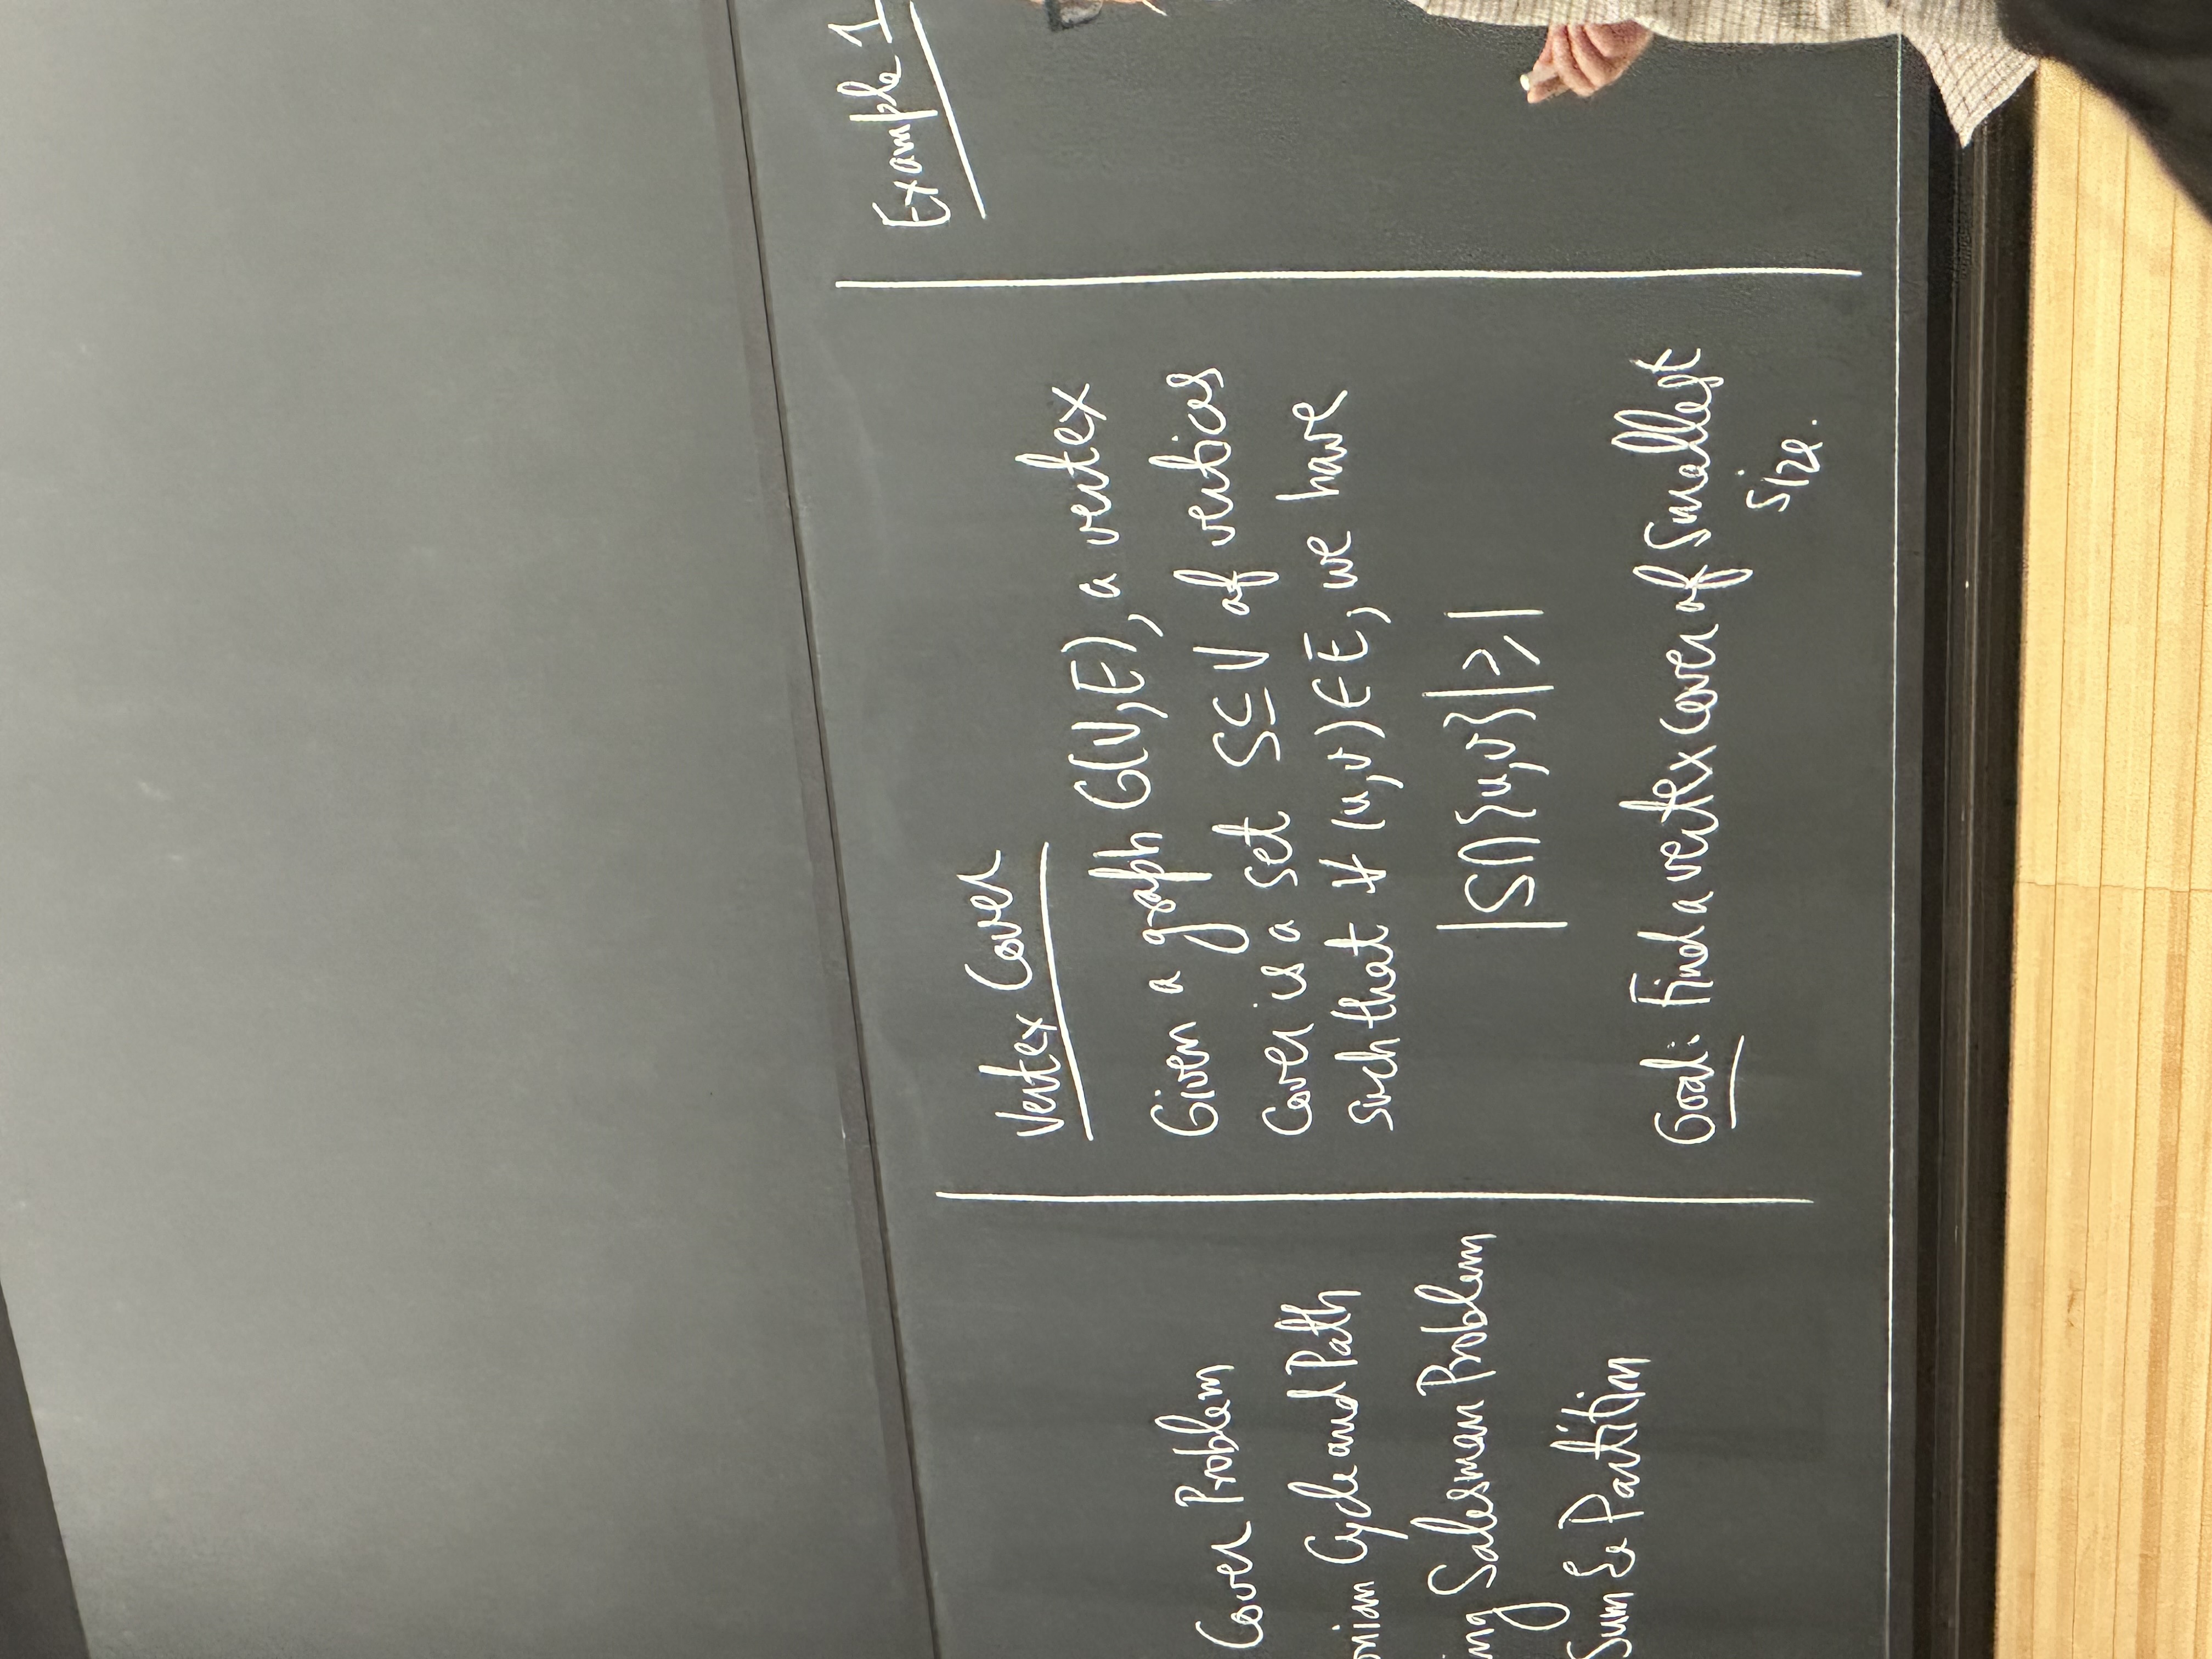 Cover Problem
onian Cycle and Path
ing Salesman Problem
Sum & Partition
Vertex Cover
Given a graph G(V,E), a vertex
cover is a set S⊆V of vertices
such that ∀ (u,v)∈E, we have
|S∩{u,v}|≥1
Goal: Find a vertex cover of smallest
size.
Example 1